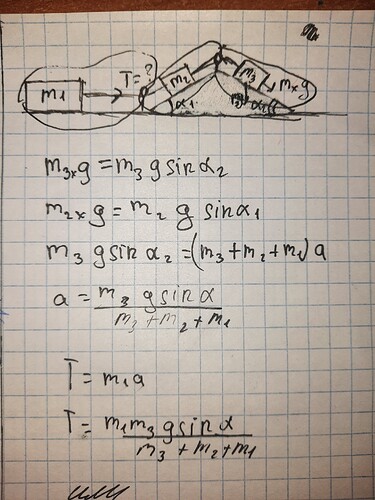 m1 T=? m2 α1 m3 α2 mxg
m3xg = m3 g sin α2
m2xg = m2 g sin α1
m3 g sin α2 = (m3 + m2 + m1) a
a = m3 g sin α / m3 + m2 + m1
T = m1 a
T = m1 m3 g sin α / m3 + m2 + m1